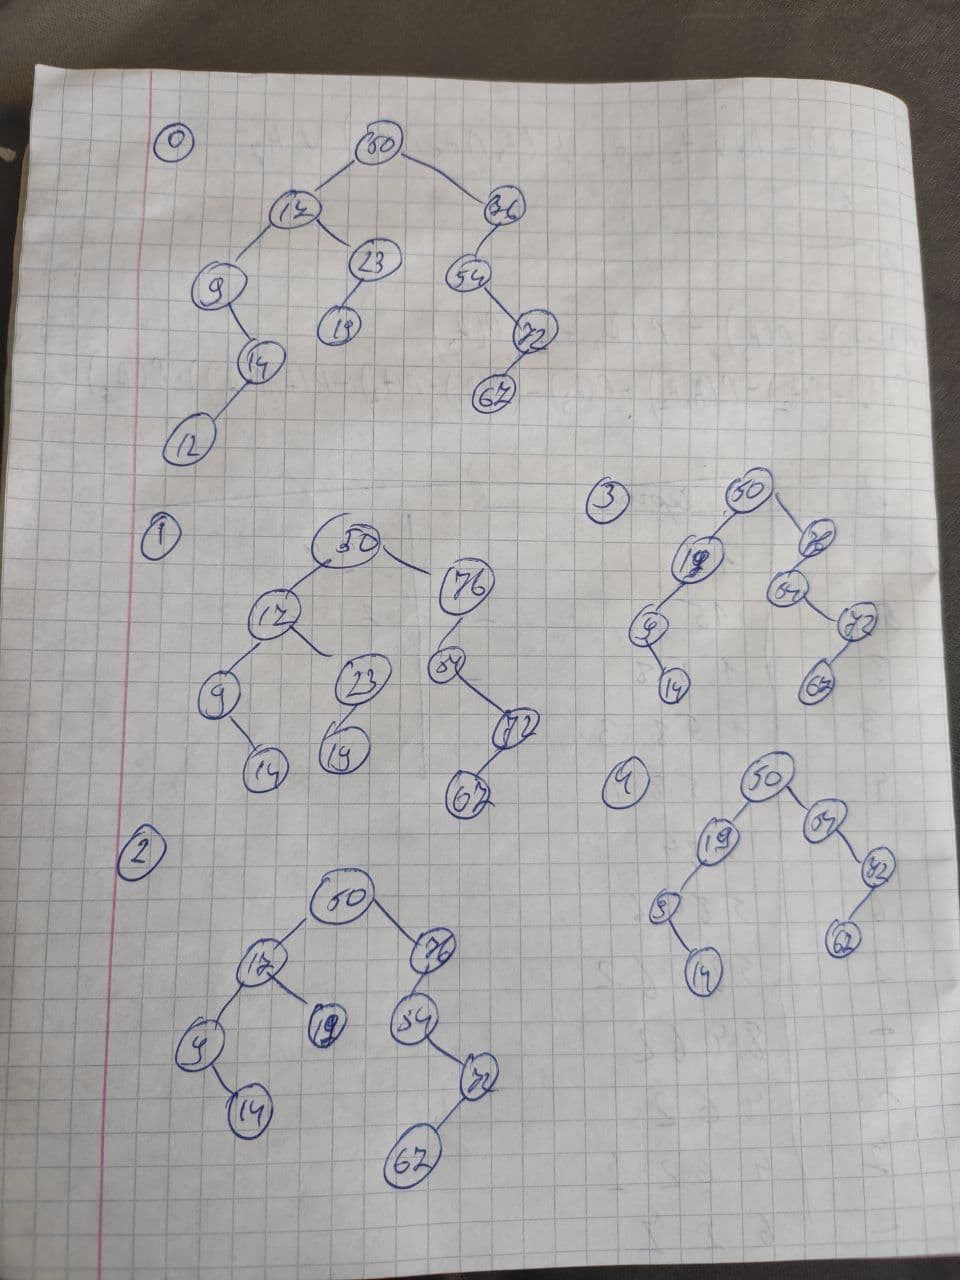 0 50
17 76
9 23 54
14 19 72
12 67
1 50
17 76
9 23 54
14 19 72
67
2 50
17 76
9 19 54
14 72
67
3 50
19 76
9 54
14 72
67
4 50
19 54
9 72
14 67